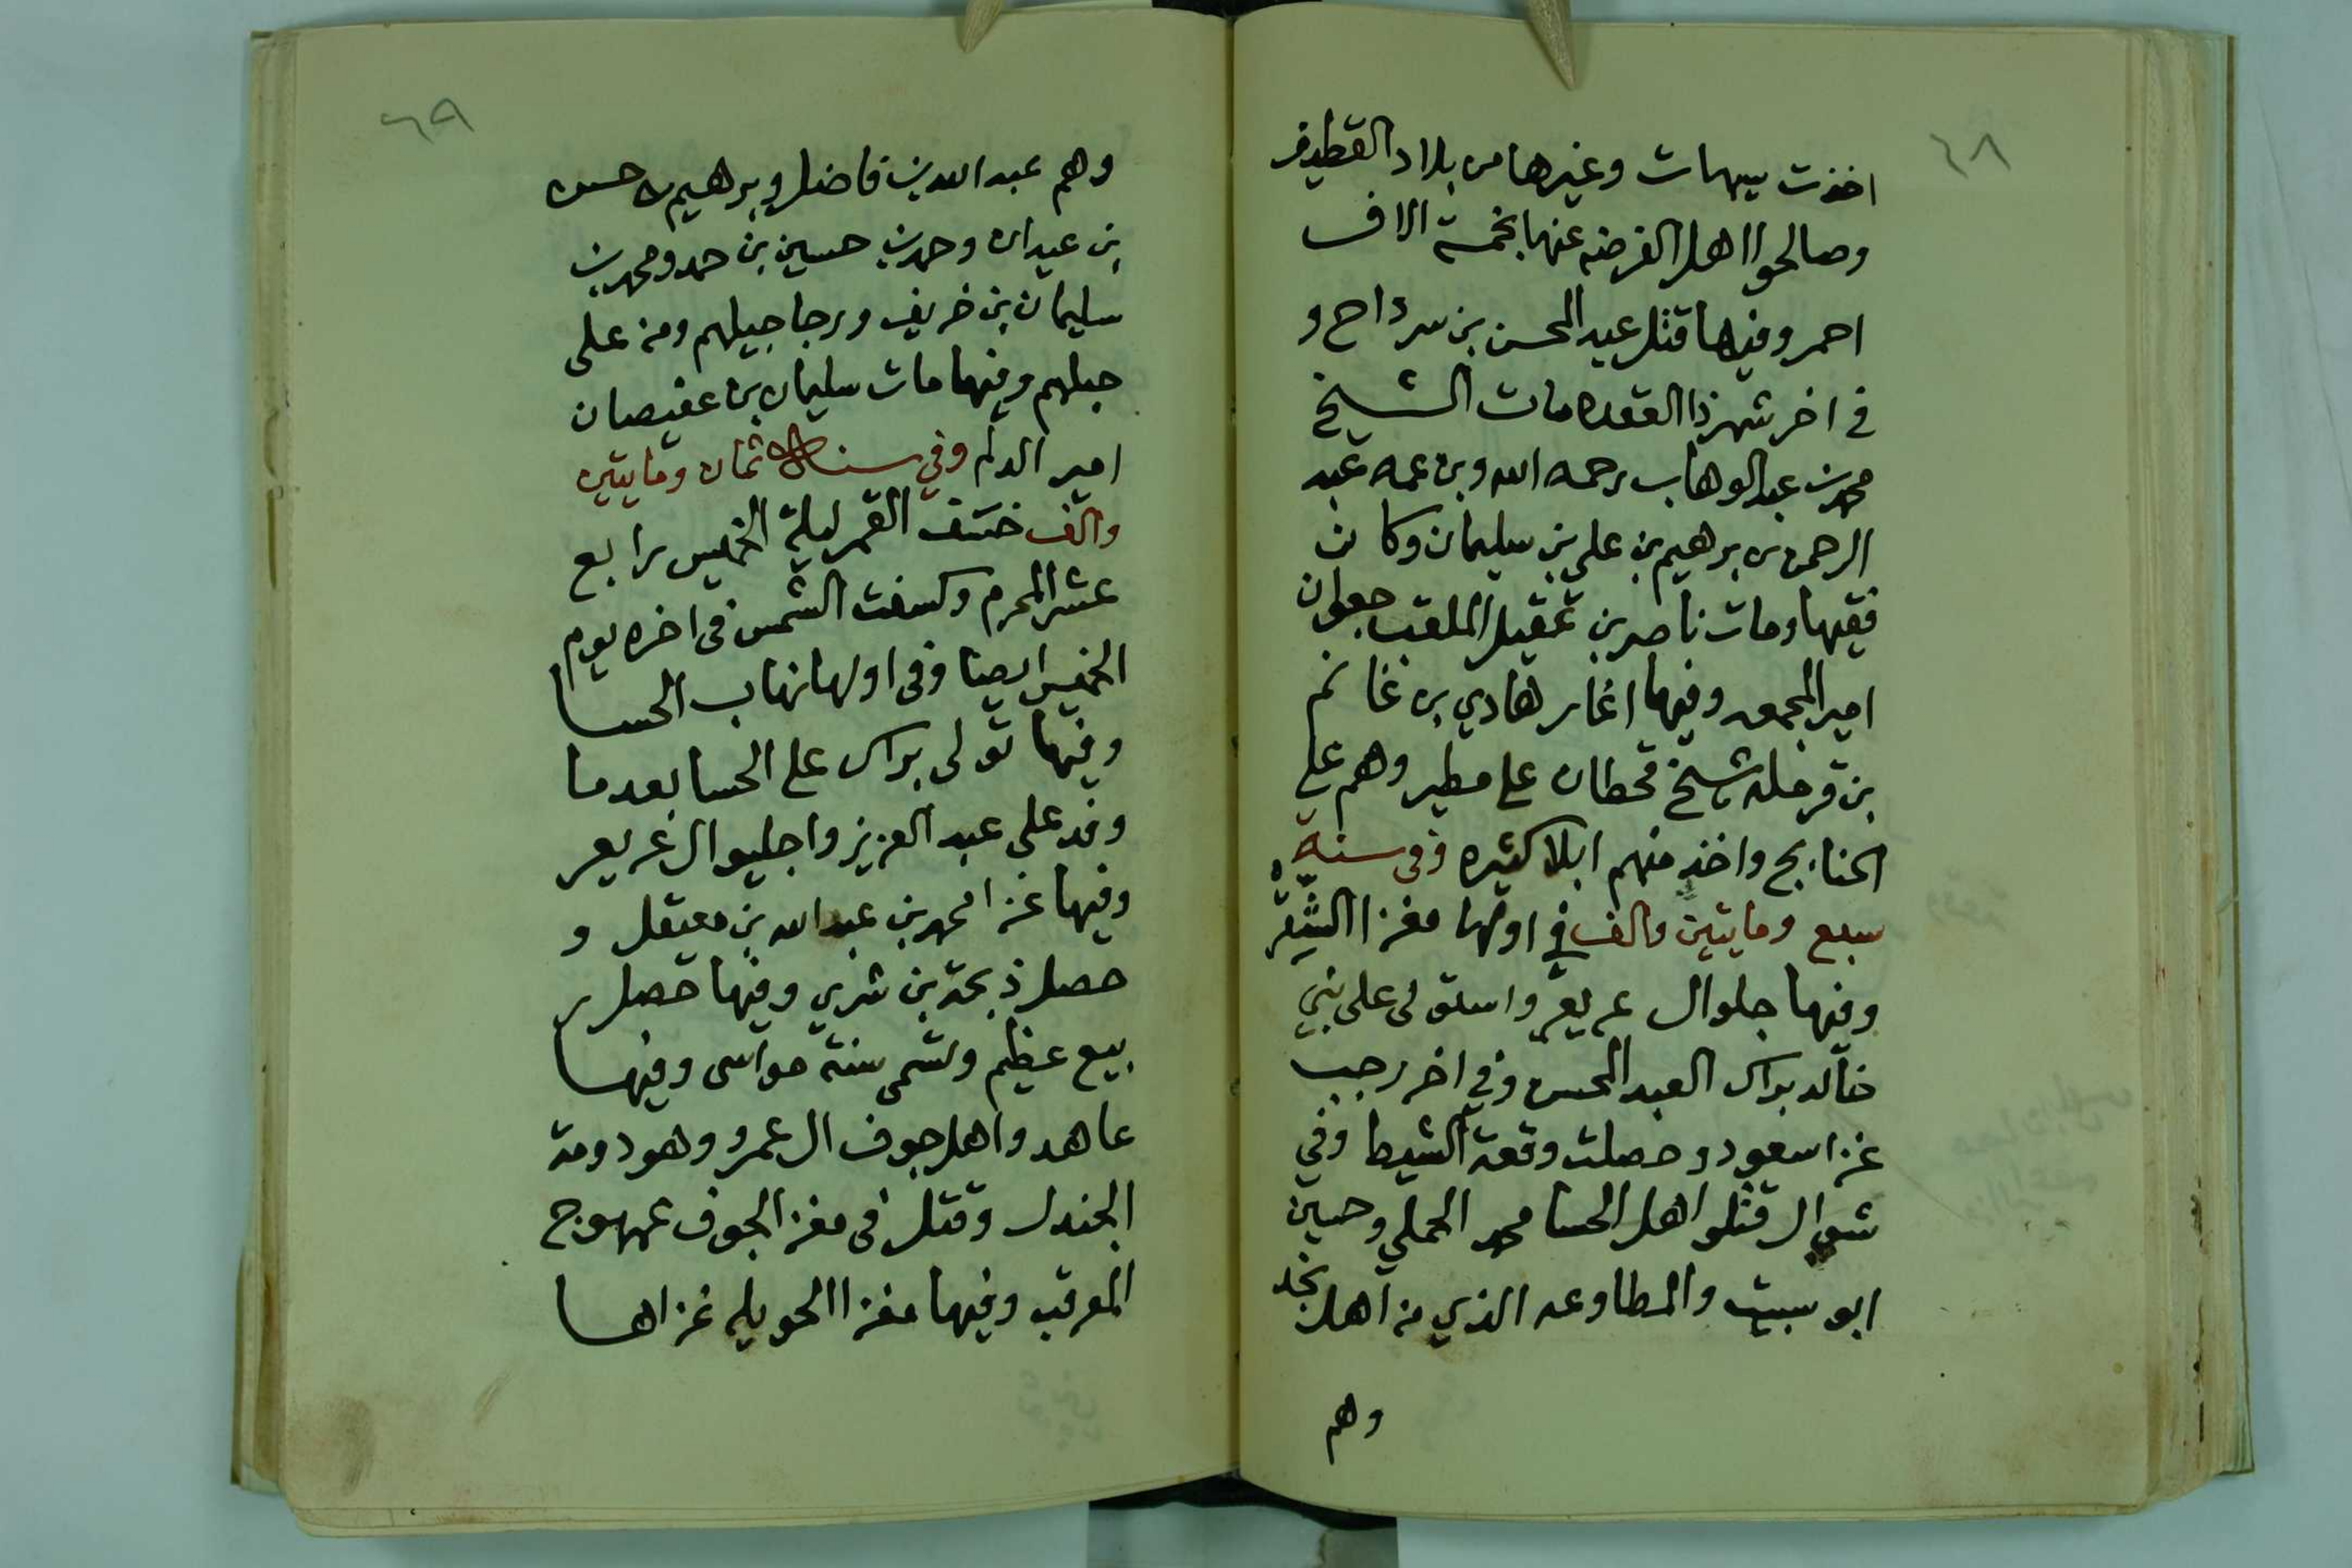 ٦٨
اخذت سيهات وغيرها من بلاد القطيف
وصالحوا اهل الفرضه عنها بخمسة الاف
احمر وفيها قتل عبد المحسن بن سرداح و
في اخر شهر ذا القعده مات الشيخ
محمد بن عبد الوهاب رحمه الله وبن عمه عبد
الرحمن بن برهيم بن علي بن سليمان وكان
فقيها ومات ناصر بن عقيل الملقب جعوان
امير المجمعه وفيها اغار هادي بن غانم
بن قرمله شيخ قحطان على مطير وهم على
الحنابج واخذ منهم ابلا كثيره وفي سنة
سبع ومايتين والف في اولها مغزا الشقره
وفيها جلو ال عريعر واستولى على بني
خالد براك العبد المحسن وفي اخر رجب
غزا سعود وحصلت وقعة الشيط وفي
شوال قتلو اهل الحسا محمد الحملي وحسين
ابو سبيت والمطاوعه الذي من اهل نجد
وهم
٦٩
وهم عبد الله بن فاضل وبرهيم بن حسن
بن عيدان وحمد بن حسين بن حمد ومحمد بن
سليمان بن خريف ورجاجيلهم ومن على
جبلهم وفيها مات سليمان بن عفيصان
امير الدلم وفي سنة ثمان ومايتين
والف ختسف القمر ليلة الخميس رابع
عشر المحرم وكسفت الشمس في اخره يوم
الخميس ايضا وفي اولها نهاب الحسا
وفيها تولى براك على الحسا بعدما
وفد على عبد العزيز واجليو ال عريعر
وفيها غزا محمد بن عبد الله بن معيقل و
حصل ذبحة بن شري وفيها حصل ر
بيع عظيم وتسمى سنة مواسى وفيها
عاهدوا اهل جوف ال عمرو وهو دومة
الجندل وقتل في مغز الجوف عمهوج
المرقب وفيها مغزا الحويله غزاها